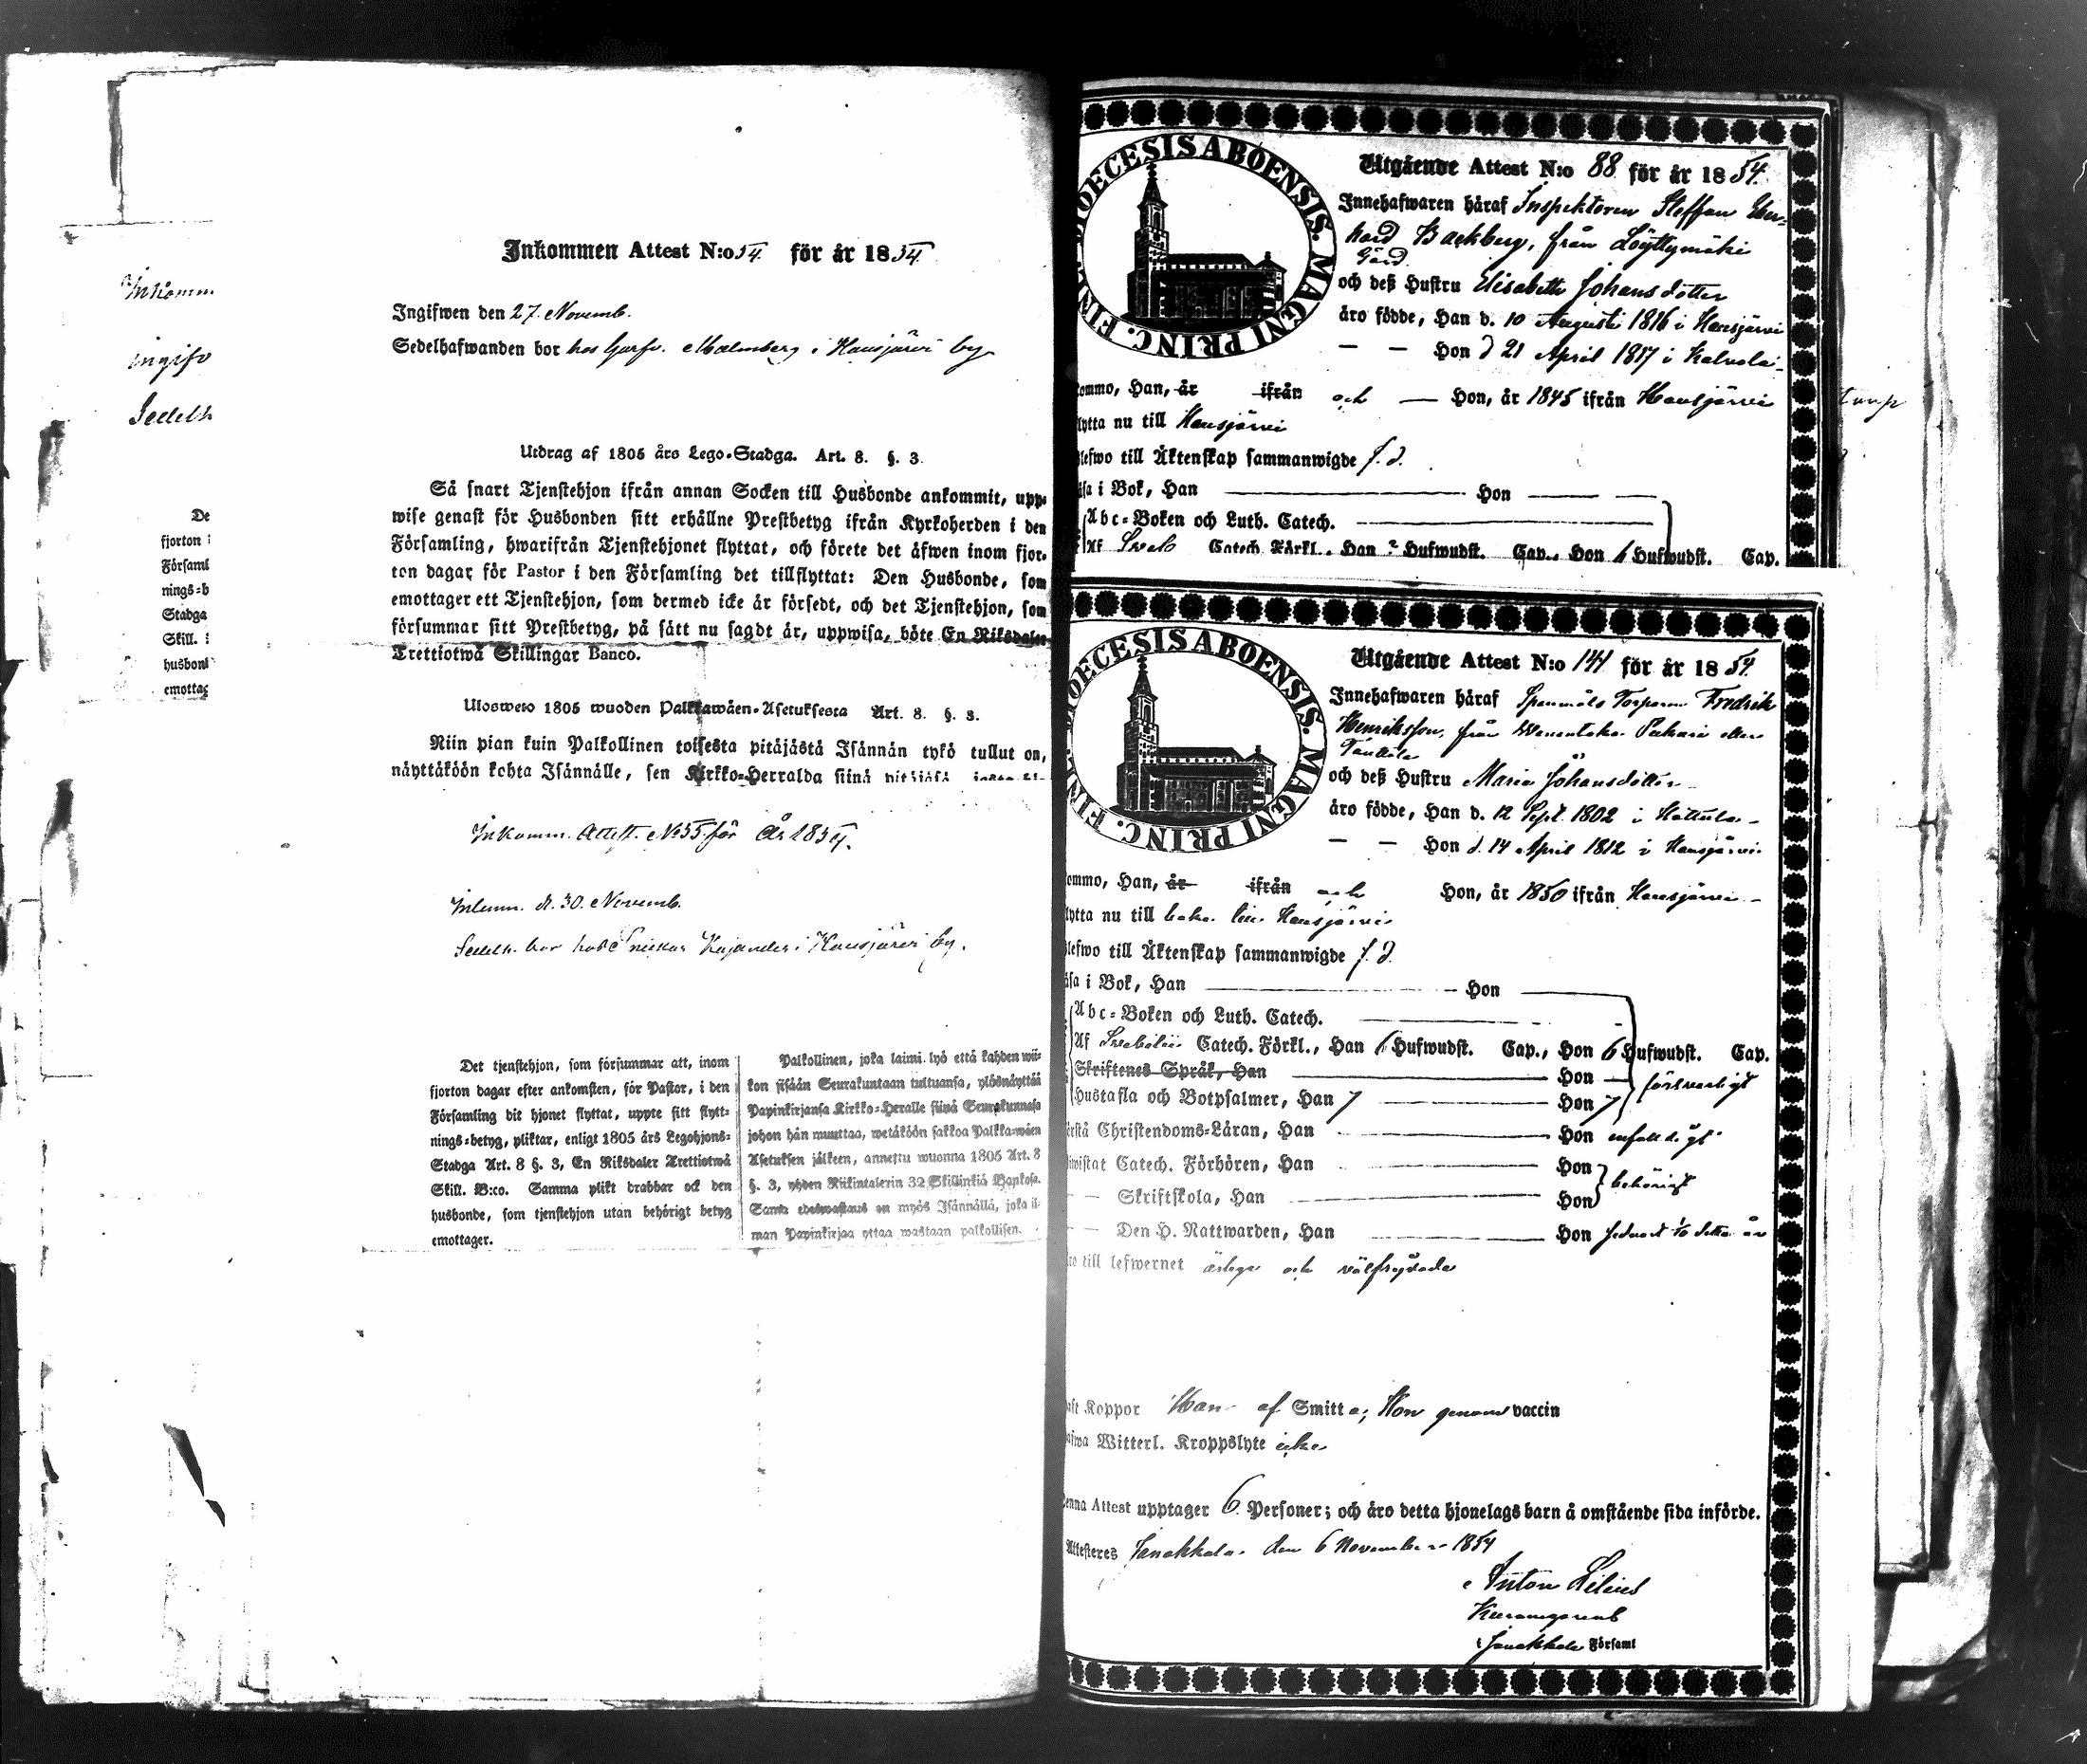 Inkomm
ingifv
Sedelh
De
fjorton i
Församl
nings=b
Stadga
Skill.
husbond
emottag
Inkommen Attest N:o 54 för år 1854.
Ingifwen den 27. Novemb.
Sedelhafwanden bor hos Garfv. Malmberg i Hausjärvi by
Utdrag af 1805 års Lego-Stadga. Art. 8. §. 3.
Så snart Tjenstehjon ifrån annan Socken till Husbonde ankommit, upp=
wise genast för Husbonden sitt erhållne Prestbetyg ifrån Kyrkoherden i den
Församling, hwarifrån Tjenstehjonet flyttat, och förete det äfwen inom fjor=
ton dagar för Pastor i den Församling det tillflyttat: Den Husbonde, som
emottager ett Tjenstehjon, som dermed icke är försedt, och det Tjenstehjon, som
försummar sitt Prestbetyg, på sätt nu sagdt är, uppwisa, böte En Riksdaler
Trettiotwå Skillingar Banco.
Ulosweto 1805 wuoden Palkkawäen-Asetuksesta Art. 8. §. 3.
Niin pian kuin Palkollinen toisesta pitäjästä Isännän tykö tullut on,
näyttäköön kohta Isännälle, sen Kirkko=Herralda siinä pitäjäsä
Inkomm. Attest. No 55 för År 1854.
Inlemn. d. 30. Novemb.
Sedelh. bor hos Snickar Kajander i Hausjärvi by.
Det tjenstehjon, som försummar att, inom
fjorton dagar efter ankomsten, för Pastor, i den
Församling dit hjonet flyttat, uppte sitt flytt=
nings=betyg, pliktar, enligt 1805 års Legohjons=
Stadga Art. 8 §. 3, En Riksdaler Trettiotwå
Skill. B:co. Samma plikt drabbar ock den
husbonde, som tjenstehjon utan behörigt betyg
emottager.
Palkollinen, joka laimi. lyö että kahden wii=
kon sisään Seurakuntaan tultuansa, ylösnäyttää
Papinkirjansa Kirkko=Heralle siinä Seurakunnasa
johon hän muuttaa, wetäköön sakkoa Palkka=wäen
Asetuksen jälkeen, annettu wuonna 1805 Art. 8
§. 3, yhden Riikintalerin 32 Skillinkiä Bankosa.
Sama edeswastaus on myös Isännällä, joka il=
man Papinkirjaa ottaa wastaan palkollisen.
DIOECESIS ABOENSIS. MAGNI PRINC. FINL.
Utgående Attest N:o 88 för år 1854.
Innehafwaren häraf Inspektoren Steffan Eber-
hard Backberg, från Löyttymäki
Gård
och deß Hustru Elisabeth Johansdotter
äro födde, Han d. 10 Augusti 1816 i Hausjärvi
— — Hon d 21 April 1817 i Kalvola
kommo, Han, år ifrån och — Hon, år 1845 ifrån Hausjärvi
flytta nu till Hausjärvi
blefwo till Äktenskap sammanwigde f. d.
läsa i Bok, Han Hon
Abc=Boken och Luth. Catech.
Af Sveb Catech. Förkl., Han Hufwudst. Cap., Hon 6 Hufwudst. Cap.
DIOECESIS ABOENSIS. MAGNI PRINC. FINL.
Utgående Attest N:o 141 för år 1854.
Innehafwaren häraf Spanmåls Torparen Fredrik
Henriksson, från Wenentaka
och deß Hustru Maria Johansdotter
äro födde, Han d. 12 Sept. 1802 i Hattula
— — Hon d. 14 April 1812 i Hausjärvi
kommo, Han, år ifrån och Hon, år 1850 ifrån Hausjärvi
flytta nu till baka till Hausjärvi
blefwo till Äktenskap sammanwigde f. d.
läsa i Bok, Han Hon
Abc=Boken och Luth. Catech.
Af Svebilii Catech. Förkl., Han 6 Hufwudst. Cap., Hon 6 Hufwudst. Cap.
Skriftenes Språk, Han Hon försvarligt
Hustafla och Botpsalmer, Han 7 Hon 7
förstå Christendoms=Läran, Han Hon enfaldigt
bewistat Catech. Förhören, Han Hon behörigt
— — Skriftskola, Han Hon
— — Den H. Nattwarden, Han Hon sednast 1/10 detta år
äro till lefwernet ärliga och välfrejdade
haft Koppor Han af Smitta; Hon genom vaccin
hafwa Witterl. Kroppslyte icke
Denna Attest upptager 6 Personer; och äro detta hjonelags barn å omstående sida införde.
Attesteres Janakkala den 6 November 1854
Anton Lilius
i Janakkala Församl